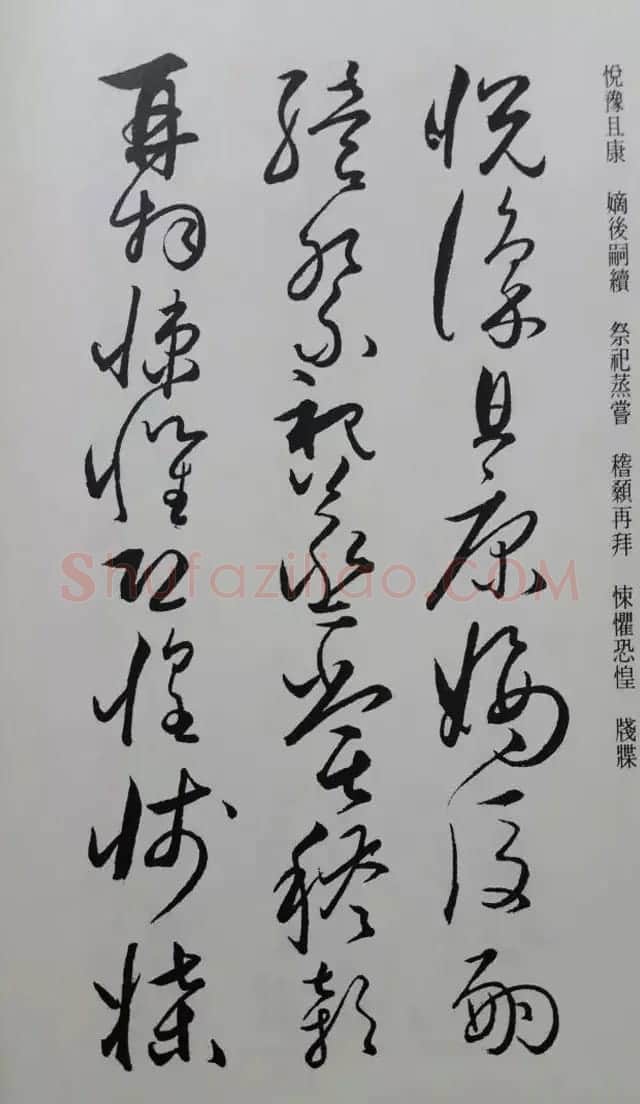 悅豫且康　嫡後嗣續　祭祀蒸嘗　稽顙再拜　悚懼恐惶　牋牒
悅豫且康嫡後嗣
續祭祀蒸嘗稽顙
再拜悚懼恐惶牋牒
Shufaziliao.COM